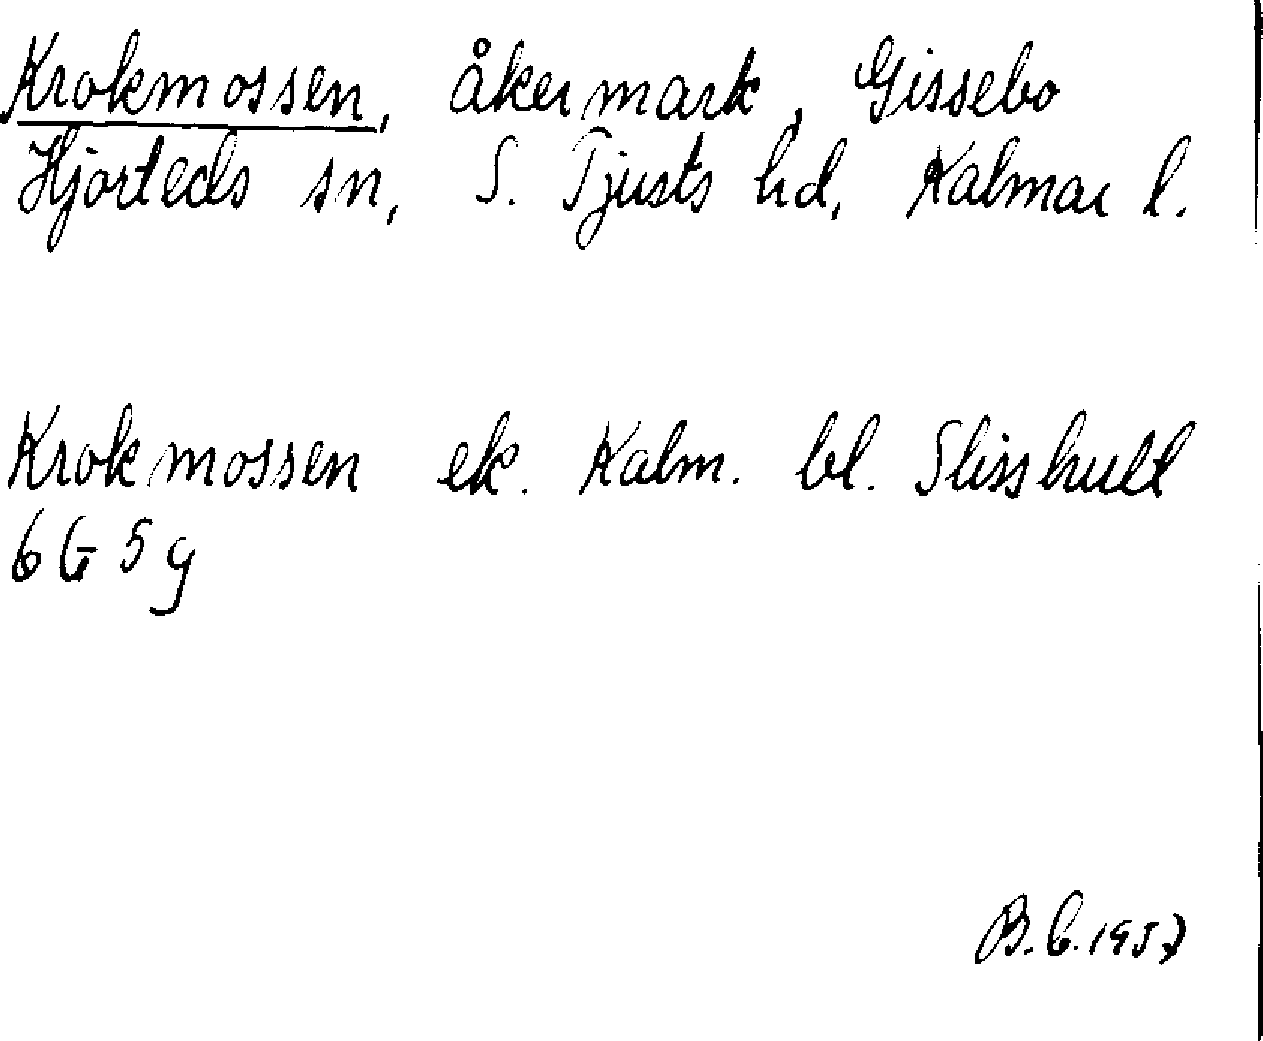 Krokmossen, åkermark, Gissebo
Hjorteds sn, S. Tjusts hd, Kalmar l.
Krokmossen ek. Kalm. bl. Slisshult
6G 5g
B.C. 1957